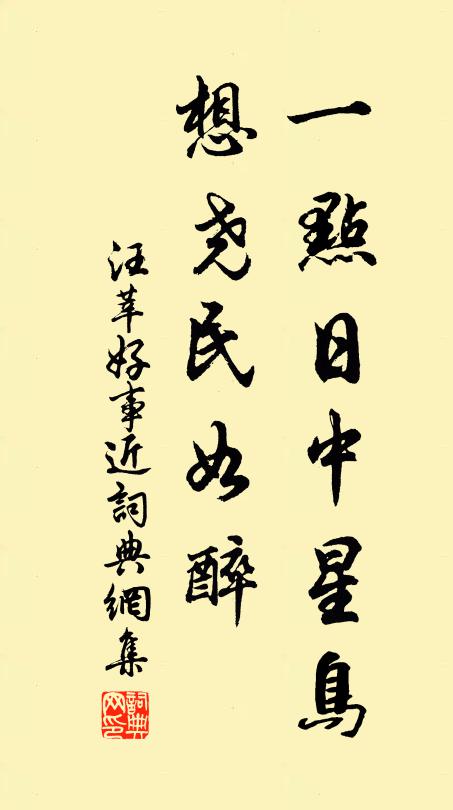 一點日中星鳥
想尧民如醉
汪莘好事近詞典網集
詞典網印